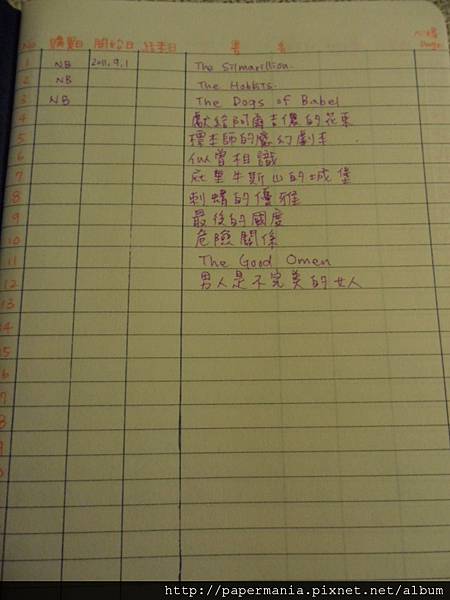 No. 購買日 開始日 結束日 書名 心得 Page
1 NB 2011.9.1 The Silmarillion.
2 NB The Hobbits.
3 NB The Dogs of Babel
4 獻給阿爾吉儂的花束
5 標本師的魔幻劇本
6 似曾相識
7 庇里牛斯山的城堡
8 刺蝟的優雅
9 最後的國度
10 危險關係
11 The Good Omen
12 男人是不完美的女人
13
14
15
6
7
8
9
0
http://papermania.pixnet.net/album